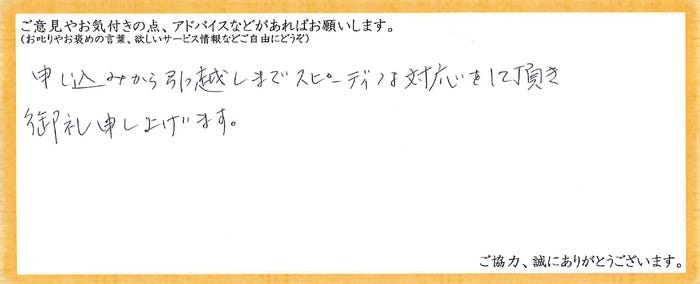 ご意見やお気付きの点、アドバイスなどがあればお願いします。
(お叱りやお褒めの言葉、欲しいサービス情報などご自由にどうぞ)
申し込みから引越しまでスピーディな対応をして頂き
御礼申し上げます。
ご協力、誠にありがとうございます。